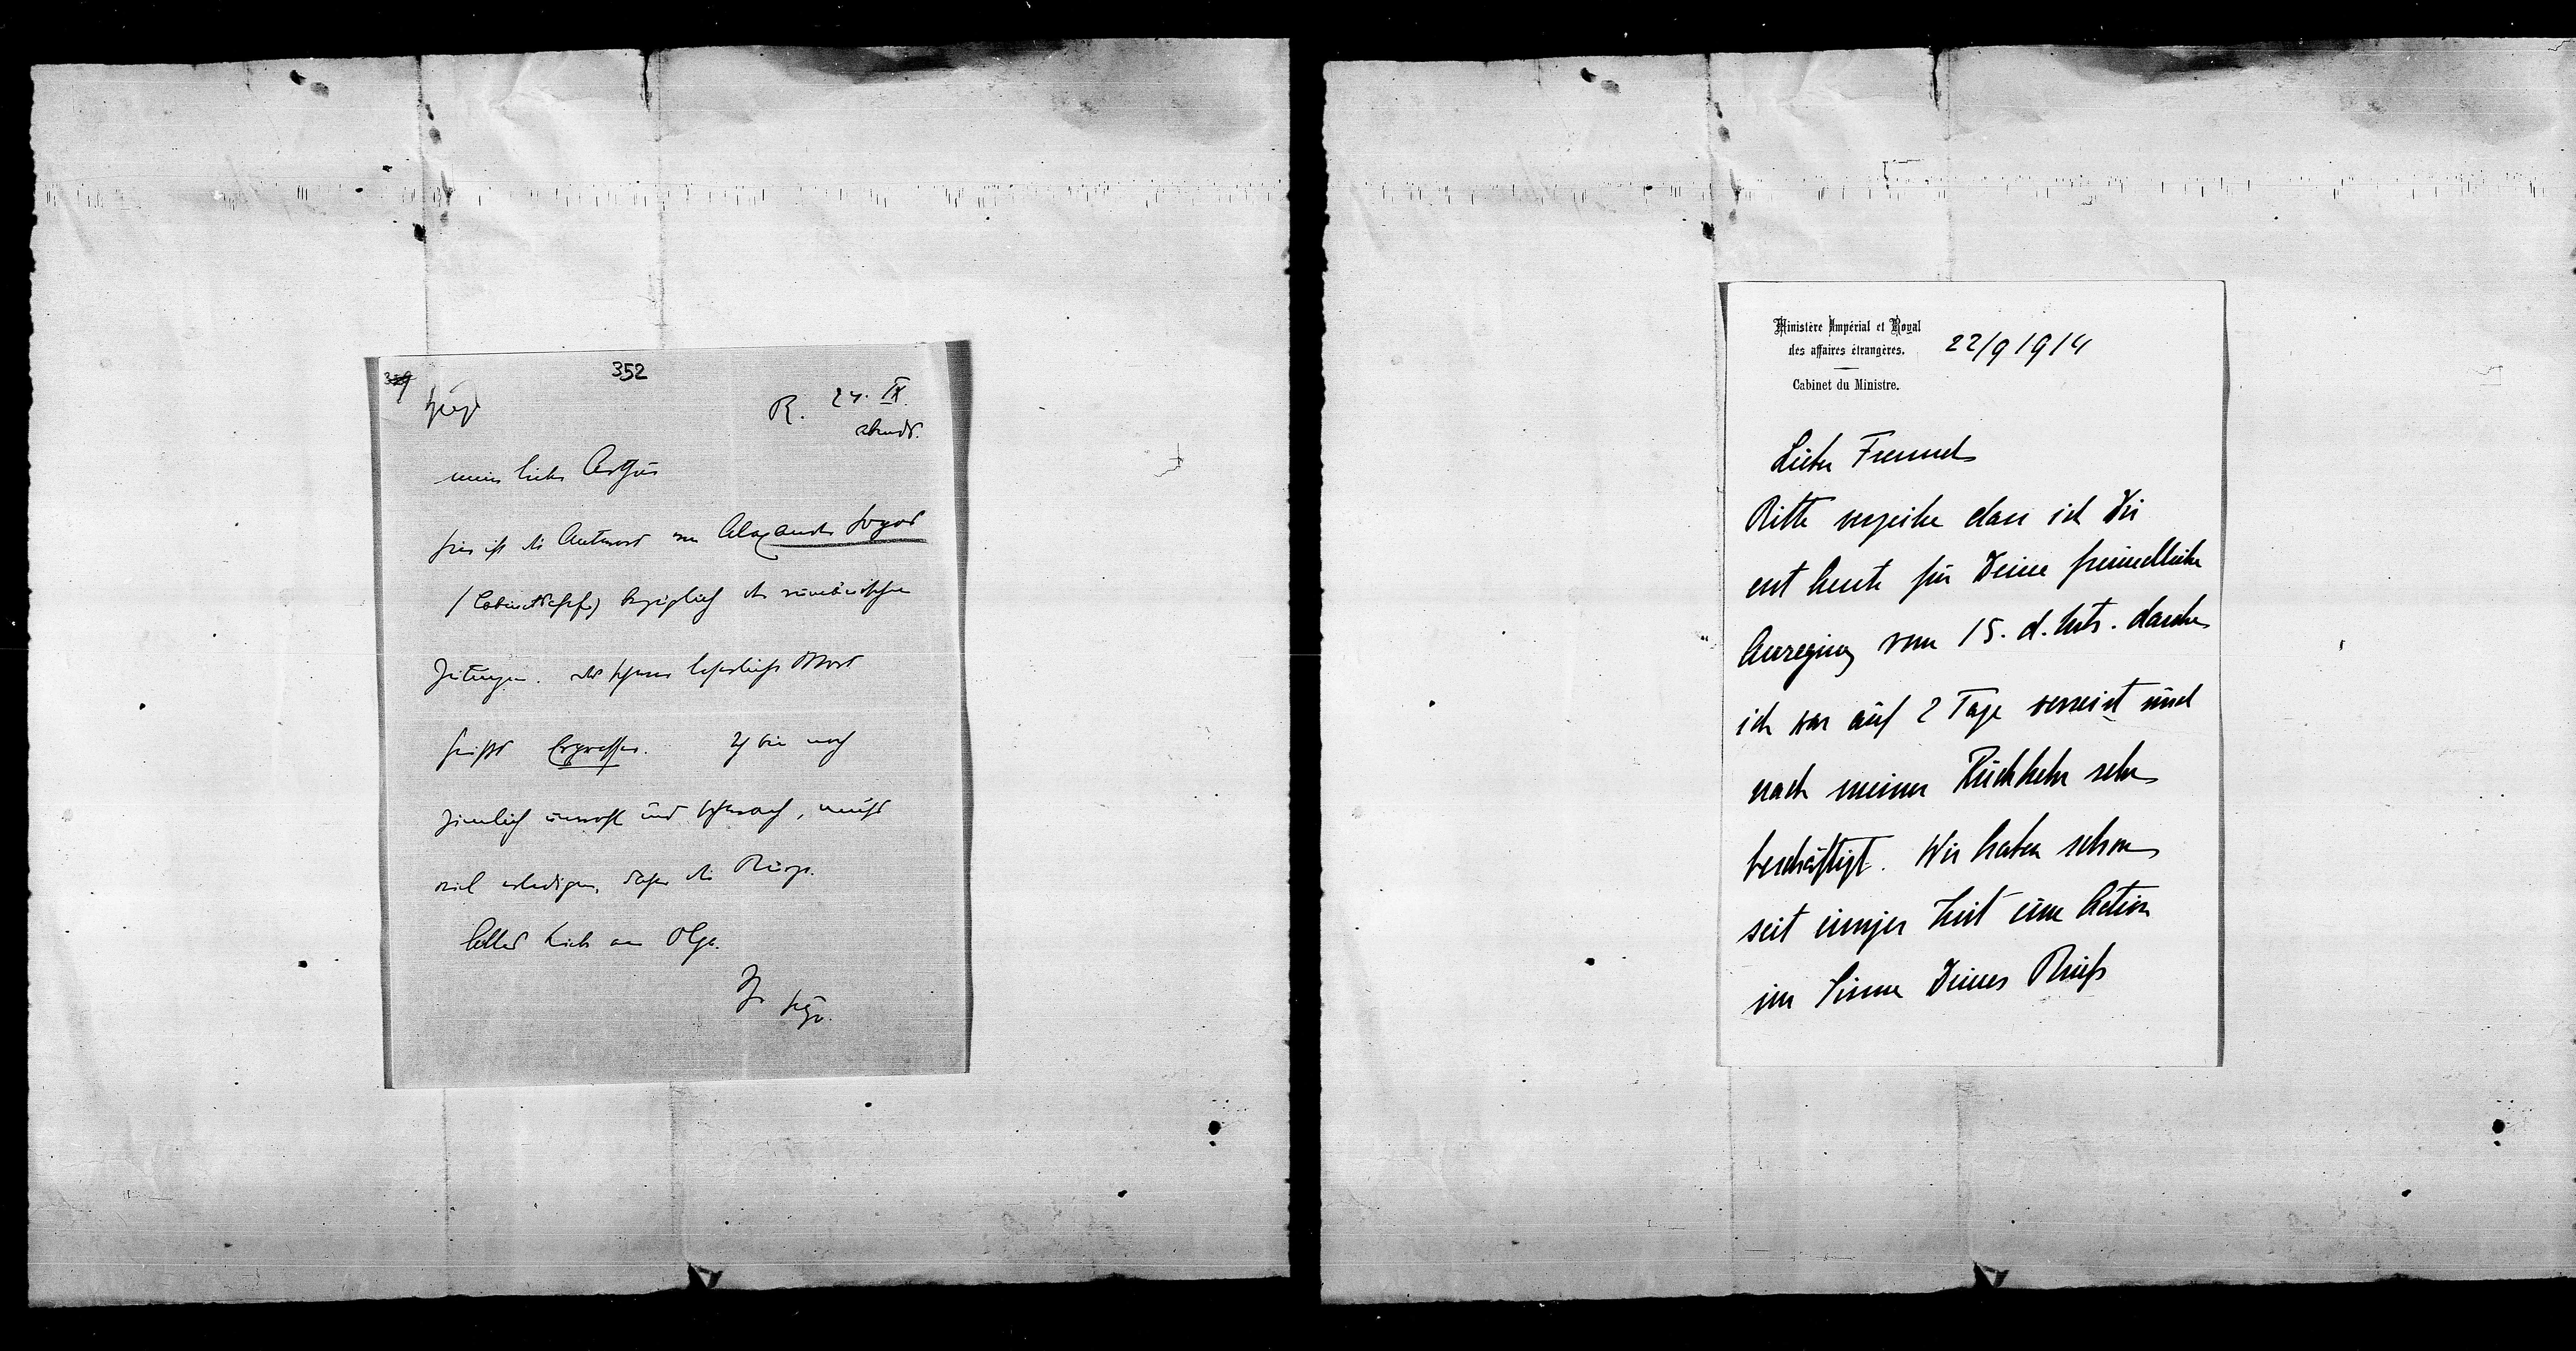 352
Hugo
R. 24. IX.
abends.
mein lieber Arthur
hier ist die Antwort von Alexander Hoyos
(Cabinetschef) bezüglich der rumänischen
Zeitungen. das schwer leserliche Wort
heißt Erpresser. Ich bin noch
ziemlich unwohl und schwach, muß
viel erledigen, daher die Kürze.
Alles Liebe an Olga.
Ihr Hugo.
Ministère Impérial et Royal
des affaires étrangères.
Cabinet du Ministre.
22/9 1914
Lieber Freund
Bitte verzeihe dass ich Dir
erst heute für Deine freundliche
Anregung vom 15. d. Mts. danke
ich war auf 2 Tage verreist und
nach meiner Rückkehr sehr
beschäftigt. Wir haben schon
seit einiger Zeit eine Action
im Sinne Deines Briefs